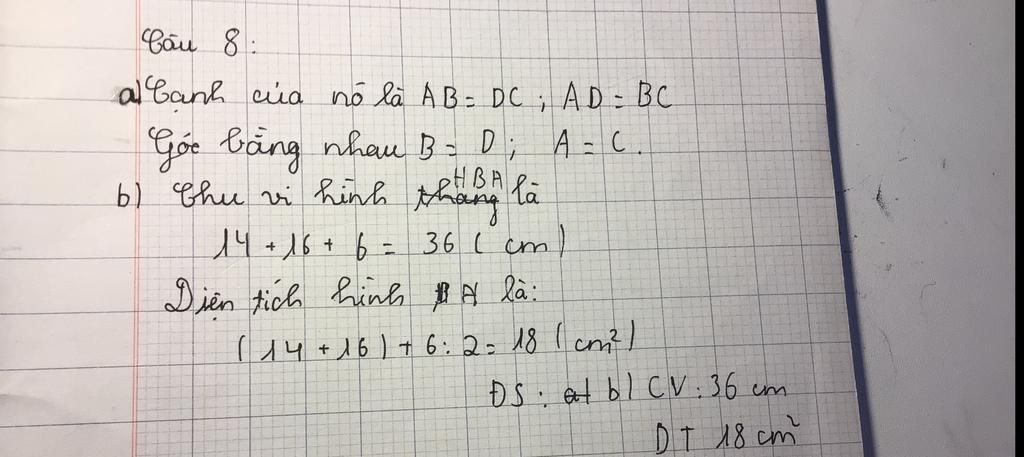 Câu 8:
a) Cạnh của nó là AB = DC; AD = BC
Góc bằng nhau B = D; A = C.
b) Chu vi hình HBA là
14 + 16 + 6 = 36 (cm)
Diện tích hình A là:
(14 + 16) + 6 : 2 = 18 (cm²)
ĐS: b) CV: 36 cm
DT 18 cm²